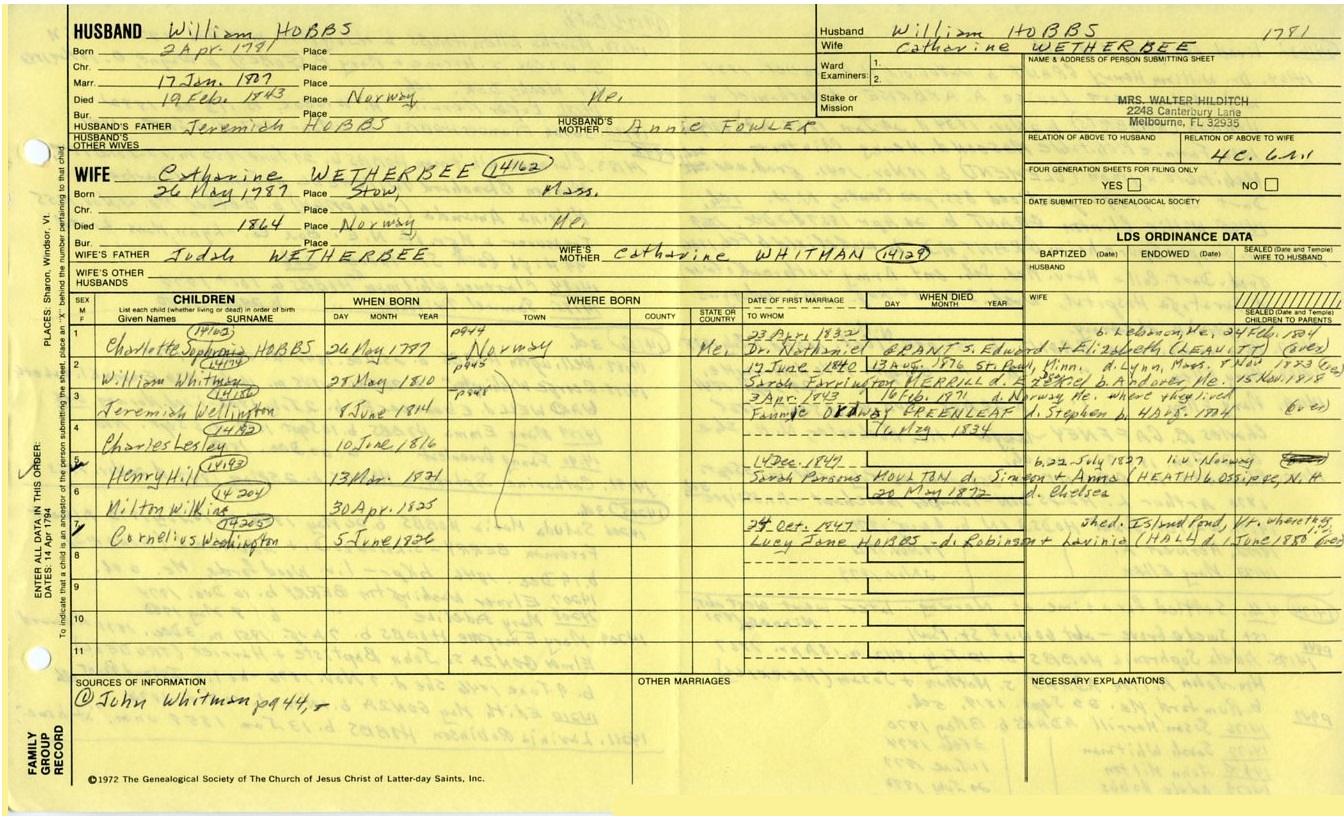 HUSBAND William HOBBS
Born 2 Apr. 1781 Place
Chr. Place
Marr. 17 Jan. 1807 Place
Died 19 Feb. 1843 Place Norway Me.
Bur. Place
HUSBAND'S FATHER Jeremiah HOBBS HUSBAND'S MOTHER Annie FOWLER
HUSBAND'S OTHER WIVES
WIFE Catharine WETHERBEE 14162
Born 26 May 1787 Place Stow, Mass.
Chr. Place
Died 1864 Place Norway, Me.
Bur. Place
WIFE'S FATHER Judah WETHERBEE WIFE'S MOTHER Catharine WHITMAN 14129
WIFE'S OTHER HUSBANDS
Husband William HOBBS 1781
Wife Catharine WETHERBEE
Ward Examiners: 1. 2.
Stake or Mission
NAME & ADDRESS OF PERSON SUBMITTING SHEET
MRS. WALTER HILDITCH
2248 Canterbury Lane
Melbourne, FL 32935
RELATION OF ABOVE TO HUSBAND RELATION OF ABOVE TO WIFE
4C. 6
FOUR GENERATION SHEETS FOR FILING ONLY
YES NO
DATE SUBMITTED TO GENEALOGICAL SOCIETY
LDS ORDINANCE DATA
BAPTIZED (Date) ENDOWED (Date) SEALED (Date and Temple) WIFE TO HUSBAND
HUSBAND
WIFE
SEALED (Date and Temple) CHILDREN TO PARENTS
SEX M F CHILDREN WHEN BORN WHERE BORN DATE OF FIRST MARRIAGE WHEN DIED
List each child (whether living or dead) in order of birth
Given Names SURNAME DAY MONTH YEAR TOWN COUNTY STATE OR COUNTRY TO WHOM DAY MONTH YEAR
1 p944 23 Apr. 1832 b. Lebanon, Me. 24 Feb. 1804
Charlotte Sophronia HOBBS 26 May 1787 Norway Me. Dr. Nathaniel GRANT s. Edward + Elizabeth (LEAVITT) (over)
2 14174 p945 17 June 1840 13 Aug. 1876 St. Paul, Minn. d. Lynn, Mass. 8 Nov 1883
William Whitman 28 May 1810 Sarah Farrington MERRILL d. Ezekiel b. Andover Me. 15 Nov. 1818
3 p948 3 Apr. 1843 16 Feb. 1871 d. Norway Me. where they lived
Jeremiah Wellington 8 June 1814 Fannye ORDWAY GREENLEAF d. Stephen b. (over)
4 14192 1834
Charles Lesley 10 June 1816
5 14193 14 Dec. 1847 b. 22 July 1827 liv. Norway
Henry Hill 13 Mar. 1821 Sarah Parsons MOULTON d. Simeon + Anna (HEATH) b. Ossipee, N.H
6 14204 20 May 1872 d. Chelsea
Milton Wilkins 30 Apr. 1825
7 14205 24 Oct. 1847 she d. Island Pond, Vt. where they
Cornelius Washington 5 June 1826 Lucy Jane HOBBS - d. Robinson + Lavinia (HALL) d. 1 June 1880 (over)
8
9
10
11
SOURCES OF INFORMATION
① John Whitman p944,-
OTHER MARRIAGES
NECESSARY EXPLANATIONS
©1972 The Genealogical Society of The Church of Jesus Christ of Latter-day Saints, Inc.
FAMILY GROUP RECORD
ENTER ALL DATA IN THIS ORDER:
DATES: 14 Apr 1794
PLACES: Sharon, Windsor, Vt.
To indicate that a child is an ancestor of the person submitting the sheet, place an "X" behind the number pertaining to that child.